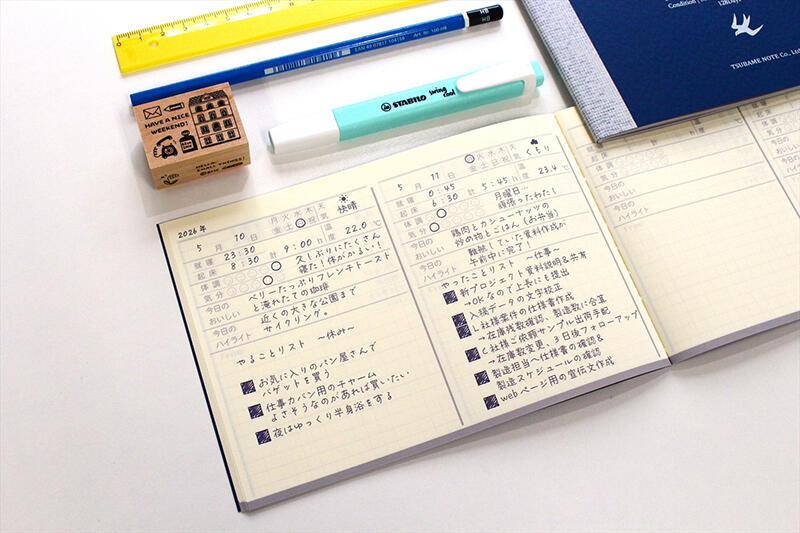 HB
EAN 40 07817 104118 Art.-Nr. 160-HB
STABILO swing cool
HAVE A NICE WEEKEND!
HELLO,
SMALL THINGS!
Condition
128Days
TSUBAME NOTE Co., Ltd.
2026年
5月10日
月火水木天
金土日祝気
快晴
就寝 23:30
起床 8:30
計 9:00 h
温度 22.0 ℃
体調
気分
久しぶりにたくさん
寝た!体がかるい!
今日の
おいしい
ベリーたっぷりフレンチトースト
と淹れたての珈琲
今日の
ハイライト
近くの大きな公園まで
サイクリング。
やることリスト 〜休み〜
お気に入りのパン屋さんで
バゲットを買う
仕事カバン用のチャーム
よさそうなのがあれば買いたい
夜はゆっくり半身浴をする
5月11日
火水木天
金土日祝気
くもり
就寝 0:45
起床 6:30
計 5:45 h
温度 23.4 ℃
体調
気分
月曜日…
頑張ったわたし
今日の
おいしい
鶏肉とカシューナッツの
炒め物とごはん(お弁当)
今日の
ハイライト
難航していた資料作成が
午前中に完了!
やったことリスト 〜仕事〜
新プロジェクト資料説明&共有
→OKなので上長にも提出
入稿データの文字校正
L社様案件の仕様書作成
→在庫残数確認、製造数に合算
C社様ご依頼サンプル出荷手配
→在庫数変更、3日後フォローアップ
製造担当へ仕様書の確認&
製造スケジュールの確認
webページ用の宣伝文作成
月日
就寝
起床
計
体調
気分
今日の
おいしい
今日の
ハイライト